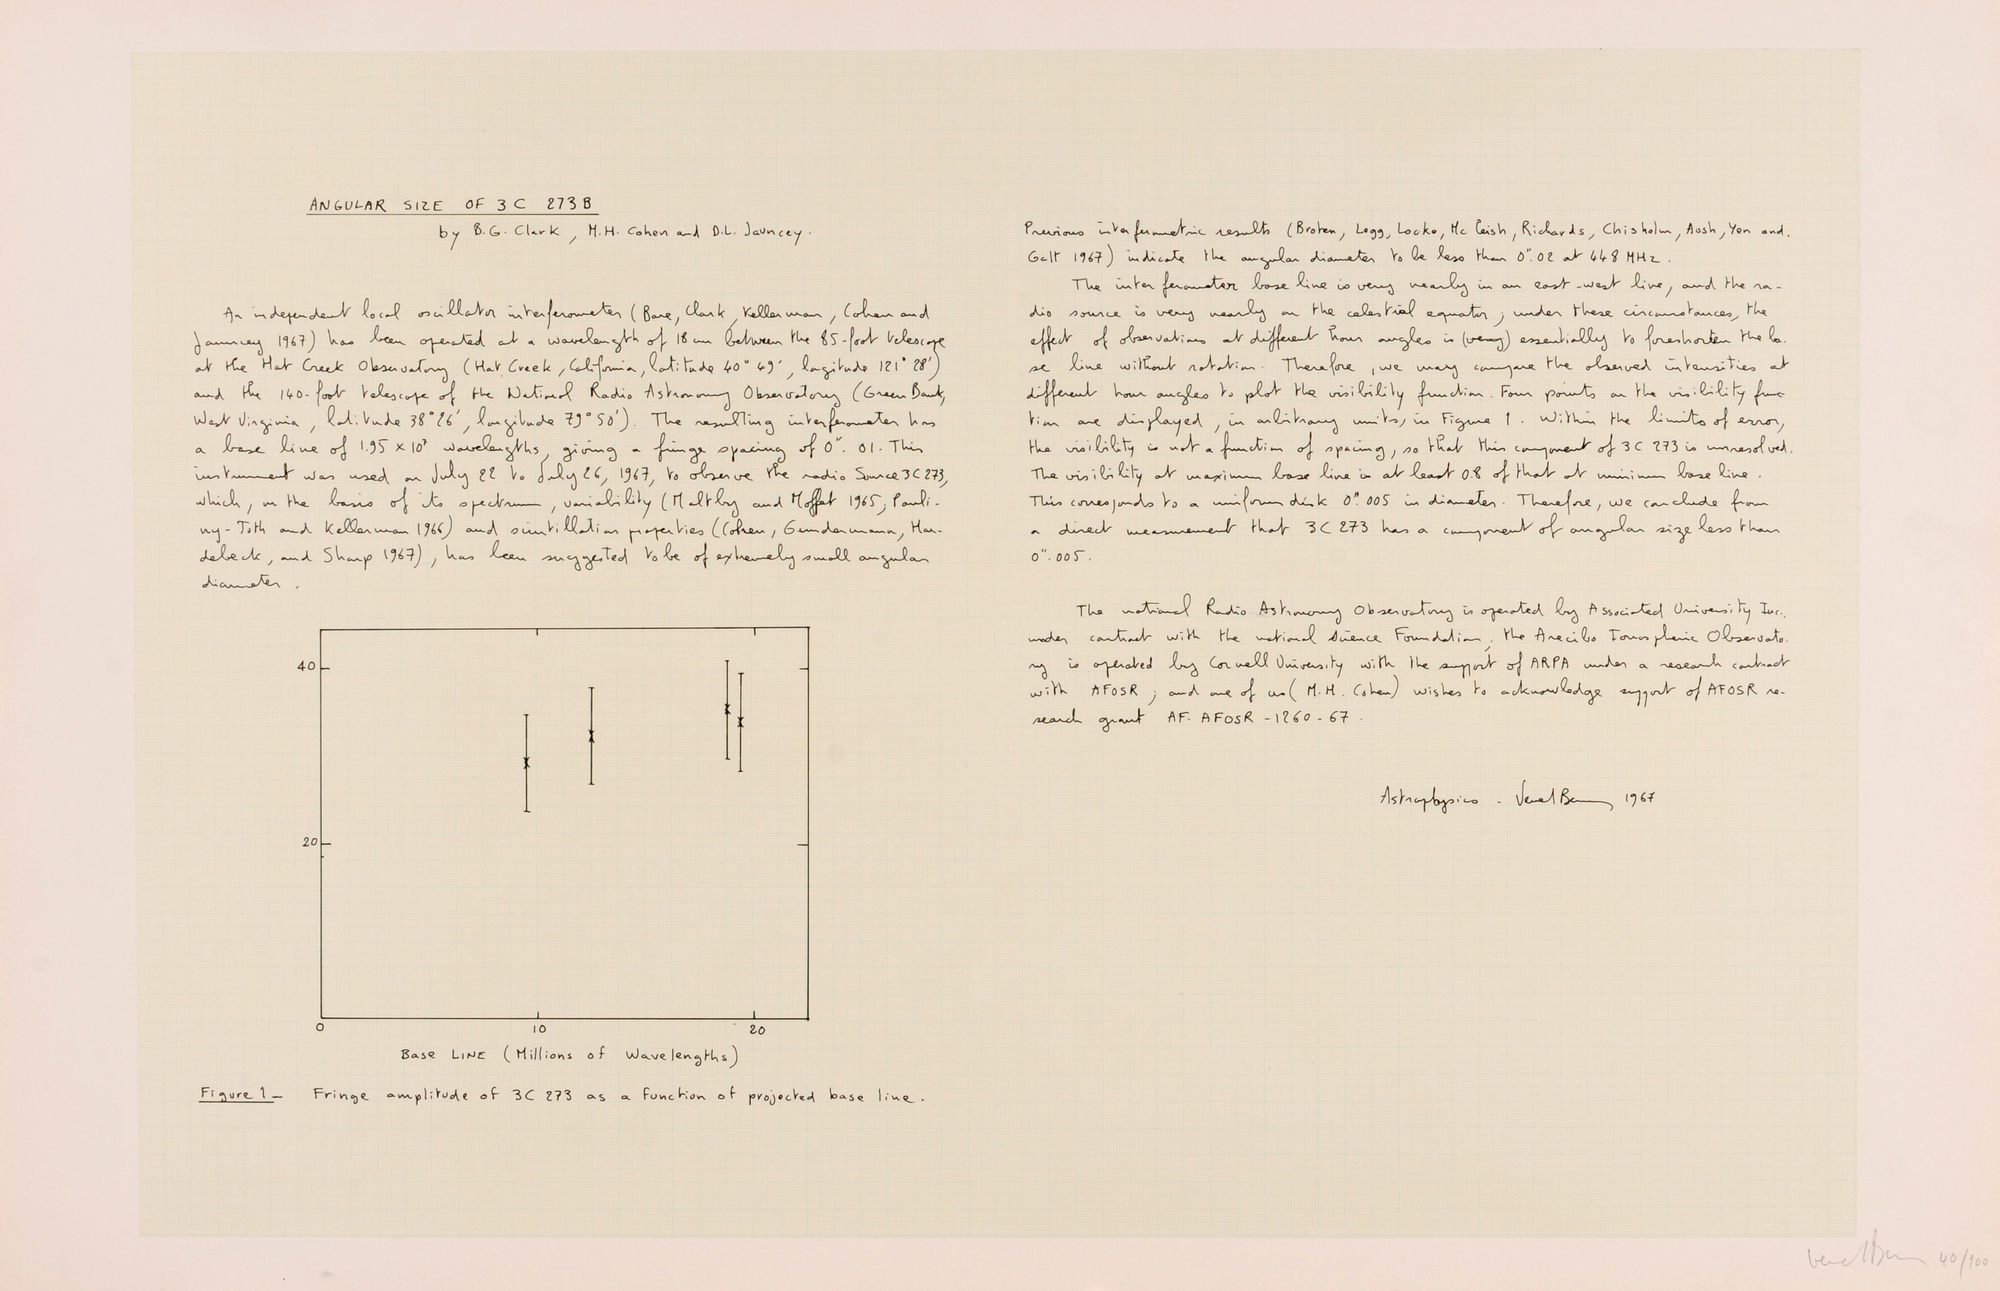 ANGULAR SIZE OF 3C 273B
by B.G. Clark, M.H. Cohen and D.L. Jauncey.
An independent local oscillator interferometer (Bare, Clark, Kellerman, Cohen and
Jauncey 1967) has been operated at a wavelength of 18 cm between the 85-foot telescope
at the Hat Creek Observatory (Hat Creek, California, latitude 40° 49', logitude 121° 28')
and the 140-foot telescope of the National Radio Astronomy Observatory (Green Bank,
West Virginia, latitude 38° 26', longitude 79° 50'). The resulting interferometer has
a base line of 1.95 × 10⁷ wavelengths, giving a fringe spacing of 0". 01. This
instrument was used on July 22 to July 26, 1967, to observe the radio Source 3C 273,
which, on the basis of its spectrum, variability (Maltby and Moffet 1965, Pauli-
ny-Toth and Kellerman 1966) and scintillation properties (Cohen, Gundermann, Har-
debeck, and Sharp 1967), has been suggested to be of extremely small angular
diameter.
40
20
0 10 20
Base LINE (Millions of Wavelengths)
Figure 1 - Fringe amplitude of 3C 273 as a function of projected base line.
Previous interferometric results (Broten, Legg, Locke, Mc Leish, Richards, Chisholm, Aush, Yen and.
Galt 1967) indicate the angular diameter to be less than 0".02 at 448 MHz.
The interferometer base line is very nearly in an east-west line, and the ra-
dio source is very nearly on the celestial equator; under these circumstances, the
effect of observations at different hour angles is (very) essentially to foreshorten the ba-
se line without rotation. Therefore, we may compare the observed intensities at
different hour angles to plot the visibility function. Four points on the visibility func-
tion are displayed, in arbitrary units, in Figure 1. Within the limits of error,
the visibility is not a function of spacing, so that this component of 3C 273 is unresolved.
The visibility at maximum base line is at least 0.8 of that at minimum base line.
This corresponds to a uniform disk 0".005 in diameter. Therefore, we conclude from
a direct measurement that 3C 273 has a component of angular size less than
0".005.
The national Radio Astronomy Observatory is operated by Associated University Inc.
under contract with the national Science Foundation; the Arecibo Ionospheric Observato-
ry is operated by Cornell University with the support of ARPA under a research contract
with AFOSR; and one of us (M.H. Cohen) wishes to acknowledge support of AFOSR re-
search grant AF. AFOSR - 1260 - 67.
Astrophysics - 1967
40/100